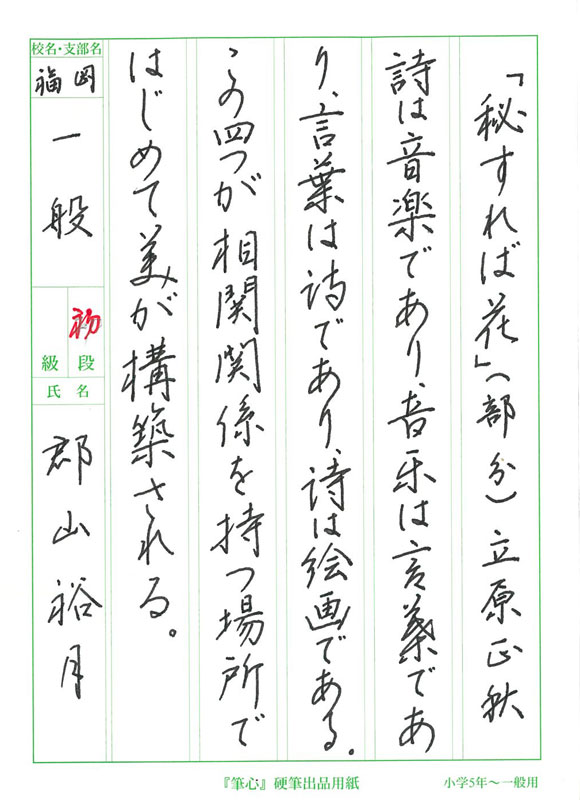 「秘すれば花」(部分) 立原正秋
詩は音楽であり、音楽は言葉であ
り、言葉は詩であり、詩は絵画である。
この四つが相関関係を持つ場所で
はじめて美が構築される。
校名・支部名
福岡
一般
初
級 段
氏名
郡山裕月
『筆心』硬筆出品用紙
小学5年〜一般用